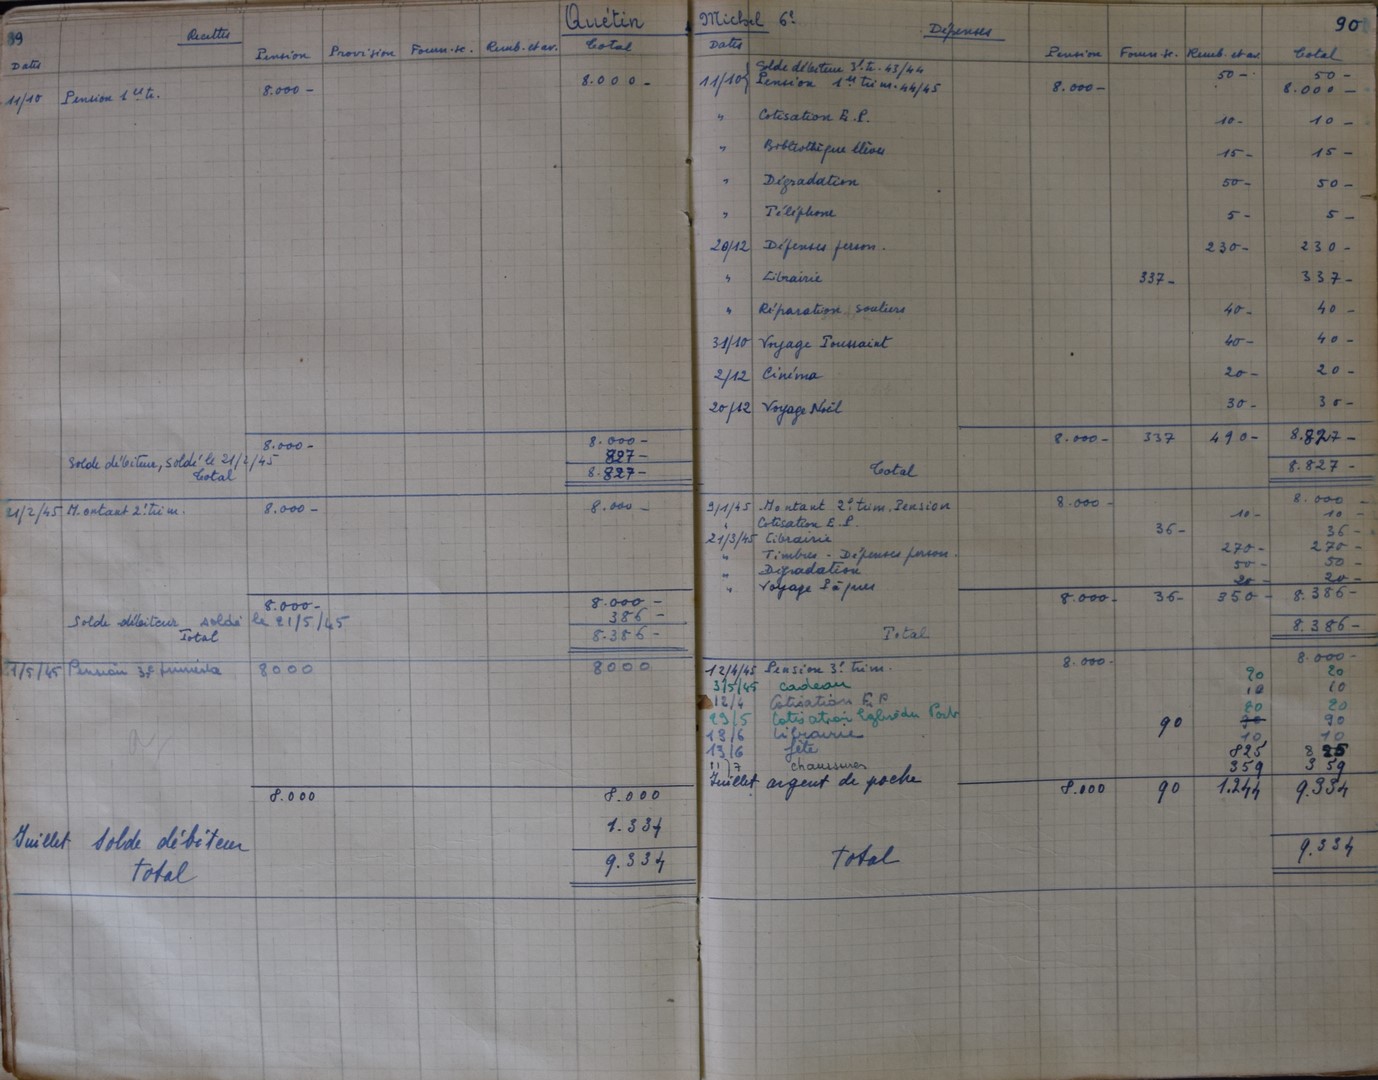 89 Recettes Quétin
Dates Pension Provision Fourn. sc. Remb. et av. Total
11/10 Pension 1er tr. 8.000 - 8.000 -
8.000 - 8.000 -
Solde débiteur, soldé le 21/2/45 827 -
Total 8.827 -
21/2/45 Montant 2e trim. 8.000 - 8.000 -
8.000 - 8.000 -
Solde débiteur soldé le 21/5/45 386 -
Total 8.386 -
1/5/45 Pension 3e 8000 8000
8.000 8.000
Juillet Solde débiteur 1.334
Total 9.334
Michel 6e Dépenses 90
Dates Pension Fourn. sc. Remb. et av. Total
Solde débiteur 3e tr. 43/44 50 - 50 -
11/10 Pension 1er trim. 44/45 8.000 - 8.000 -
" Cotisation E.P. 10 - 10 -
" Bibliothèque élèves 15 - 15 -
" Dégradation 50 - 50 -
" Téléphone 5 - 5 -
20/12 Dépenses person. 230 - 230 -
" Librairie 337 - 337 -
" Réparation souliers 40 - 40 -
31/10 Voyage Toussaint 40 - 40 -
2/12 Cinéma 20 - 20 -
20/12 Voyage Noël 30 - 30 -
8.000 - 337 490 - 8.827 -
Total 8.827 -
9/1/45 Montant 2e trim. Pension 8.000 - 8.000 -
" Cotisation E.P. 10 - 10 -
21/3/45 Librairie 36 - 36 -
" Timbres - Dépenses person. 270 - 270 -
" Dégradation 50 - 50 -
" Voyage Pâques 20 - 20 -
8.000 - 36 - 350 - 8.386 -
Total 8.386 -
12/4/45 Pension 3e trim. 8.000 - 8.000 -
3/5/45 cadeau 20 20
12/4 Cotisation E.P. 10 10
29/5 Cotisation 20 20
18/6 Librairie 90 90
13/6 fête 10 10
11/7 chaussures 825 825
Juillet argent de poche 359 359
8.000 90 1.244 9.334
Total 9.334